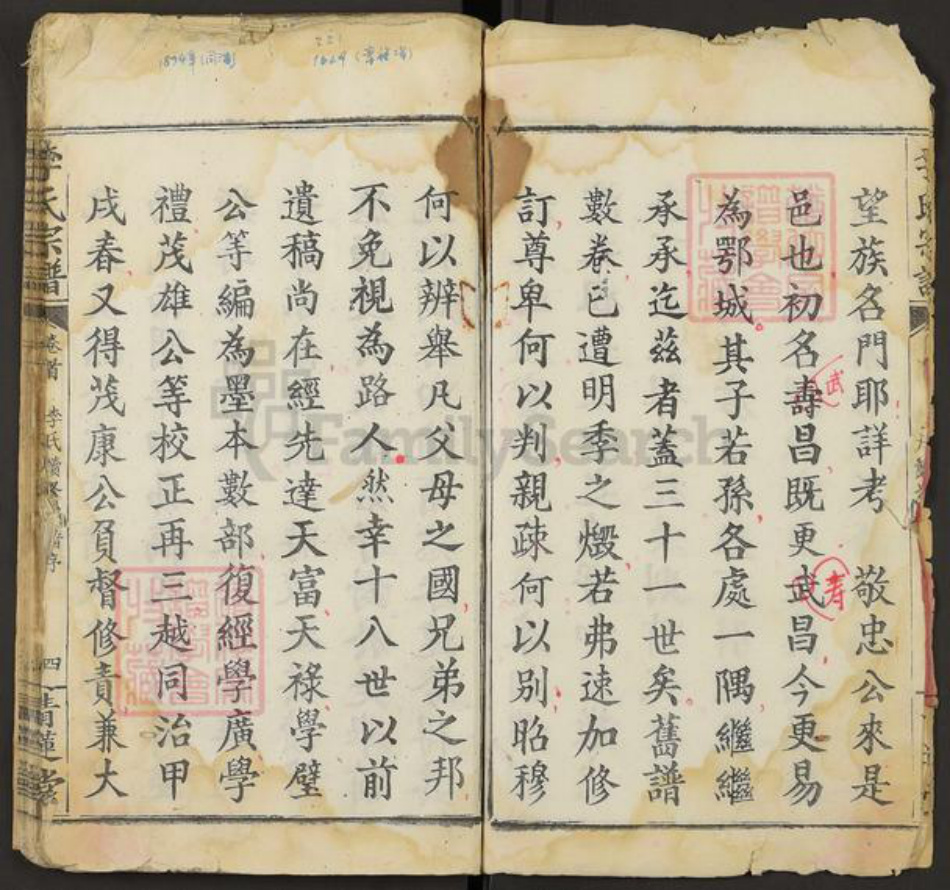 望族名門耶詳考 敬忠公來是
邑也初名壽昌既更武昌今更易
武
寿
為鄂城其子若孫各處一隅繼繼
承承迄茲者蓋三十一世矣舊譜
數卷已遭明季之燬若弗速加修
訂尊卑何以判親疎何以別昭穆
何以辨舉凡父母之國兄弟之邦
不免視為路人然幸十八世以前
遺稿尚在經先達天富天祿學璧
公等編為墨本數部復經學廣學
禮茂雄公等校正再三越同治甲
戌春又得茂康公負督修責兼大
李氏宗譜
卷首
四
青蓮堂
1874年
FamilySearch